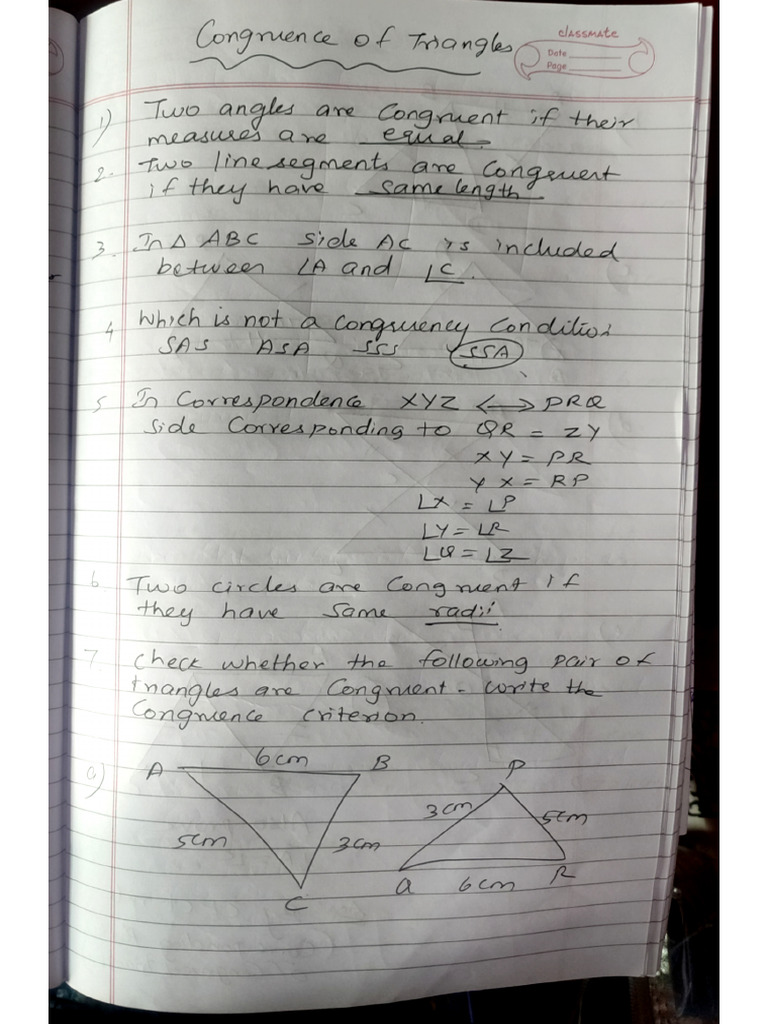 Congruence of Triangles
classmate
Date
Page
1) Two angles are Congruent if their
measures are equal.
2. Two line segments are Congruent
if they have same length
3. In Δ ABC side AC is included
between ∠A and ∠C.
4 Which is not a congruency Condition
SAS ASA SSS SSA
5 In Correspondence XYZ <-> PRQ
side Corresponding to QR = ZY
XY = PR
YX = RP
∠X = ∠P
∠Y = ∠R
∠Q = ∠Z
6. Two circles are Congruent if
they have same radii.
7 Check whether the following pair of
triangles are Congruent. write the
Congruence criterion.
a) A 6cm B P
5cm 3cm 3cm 5cm
C Q 6cm R